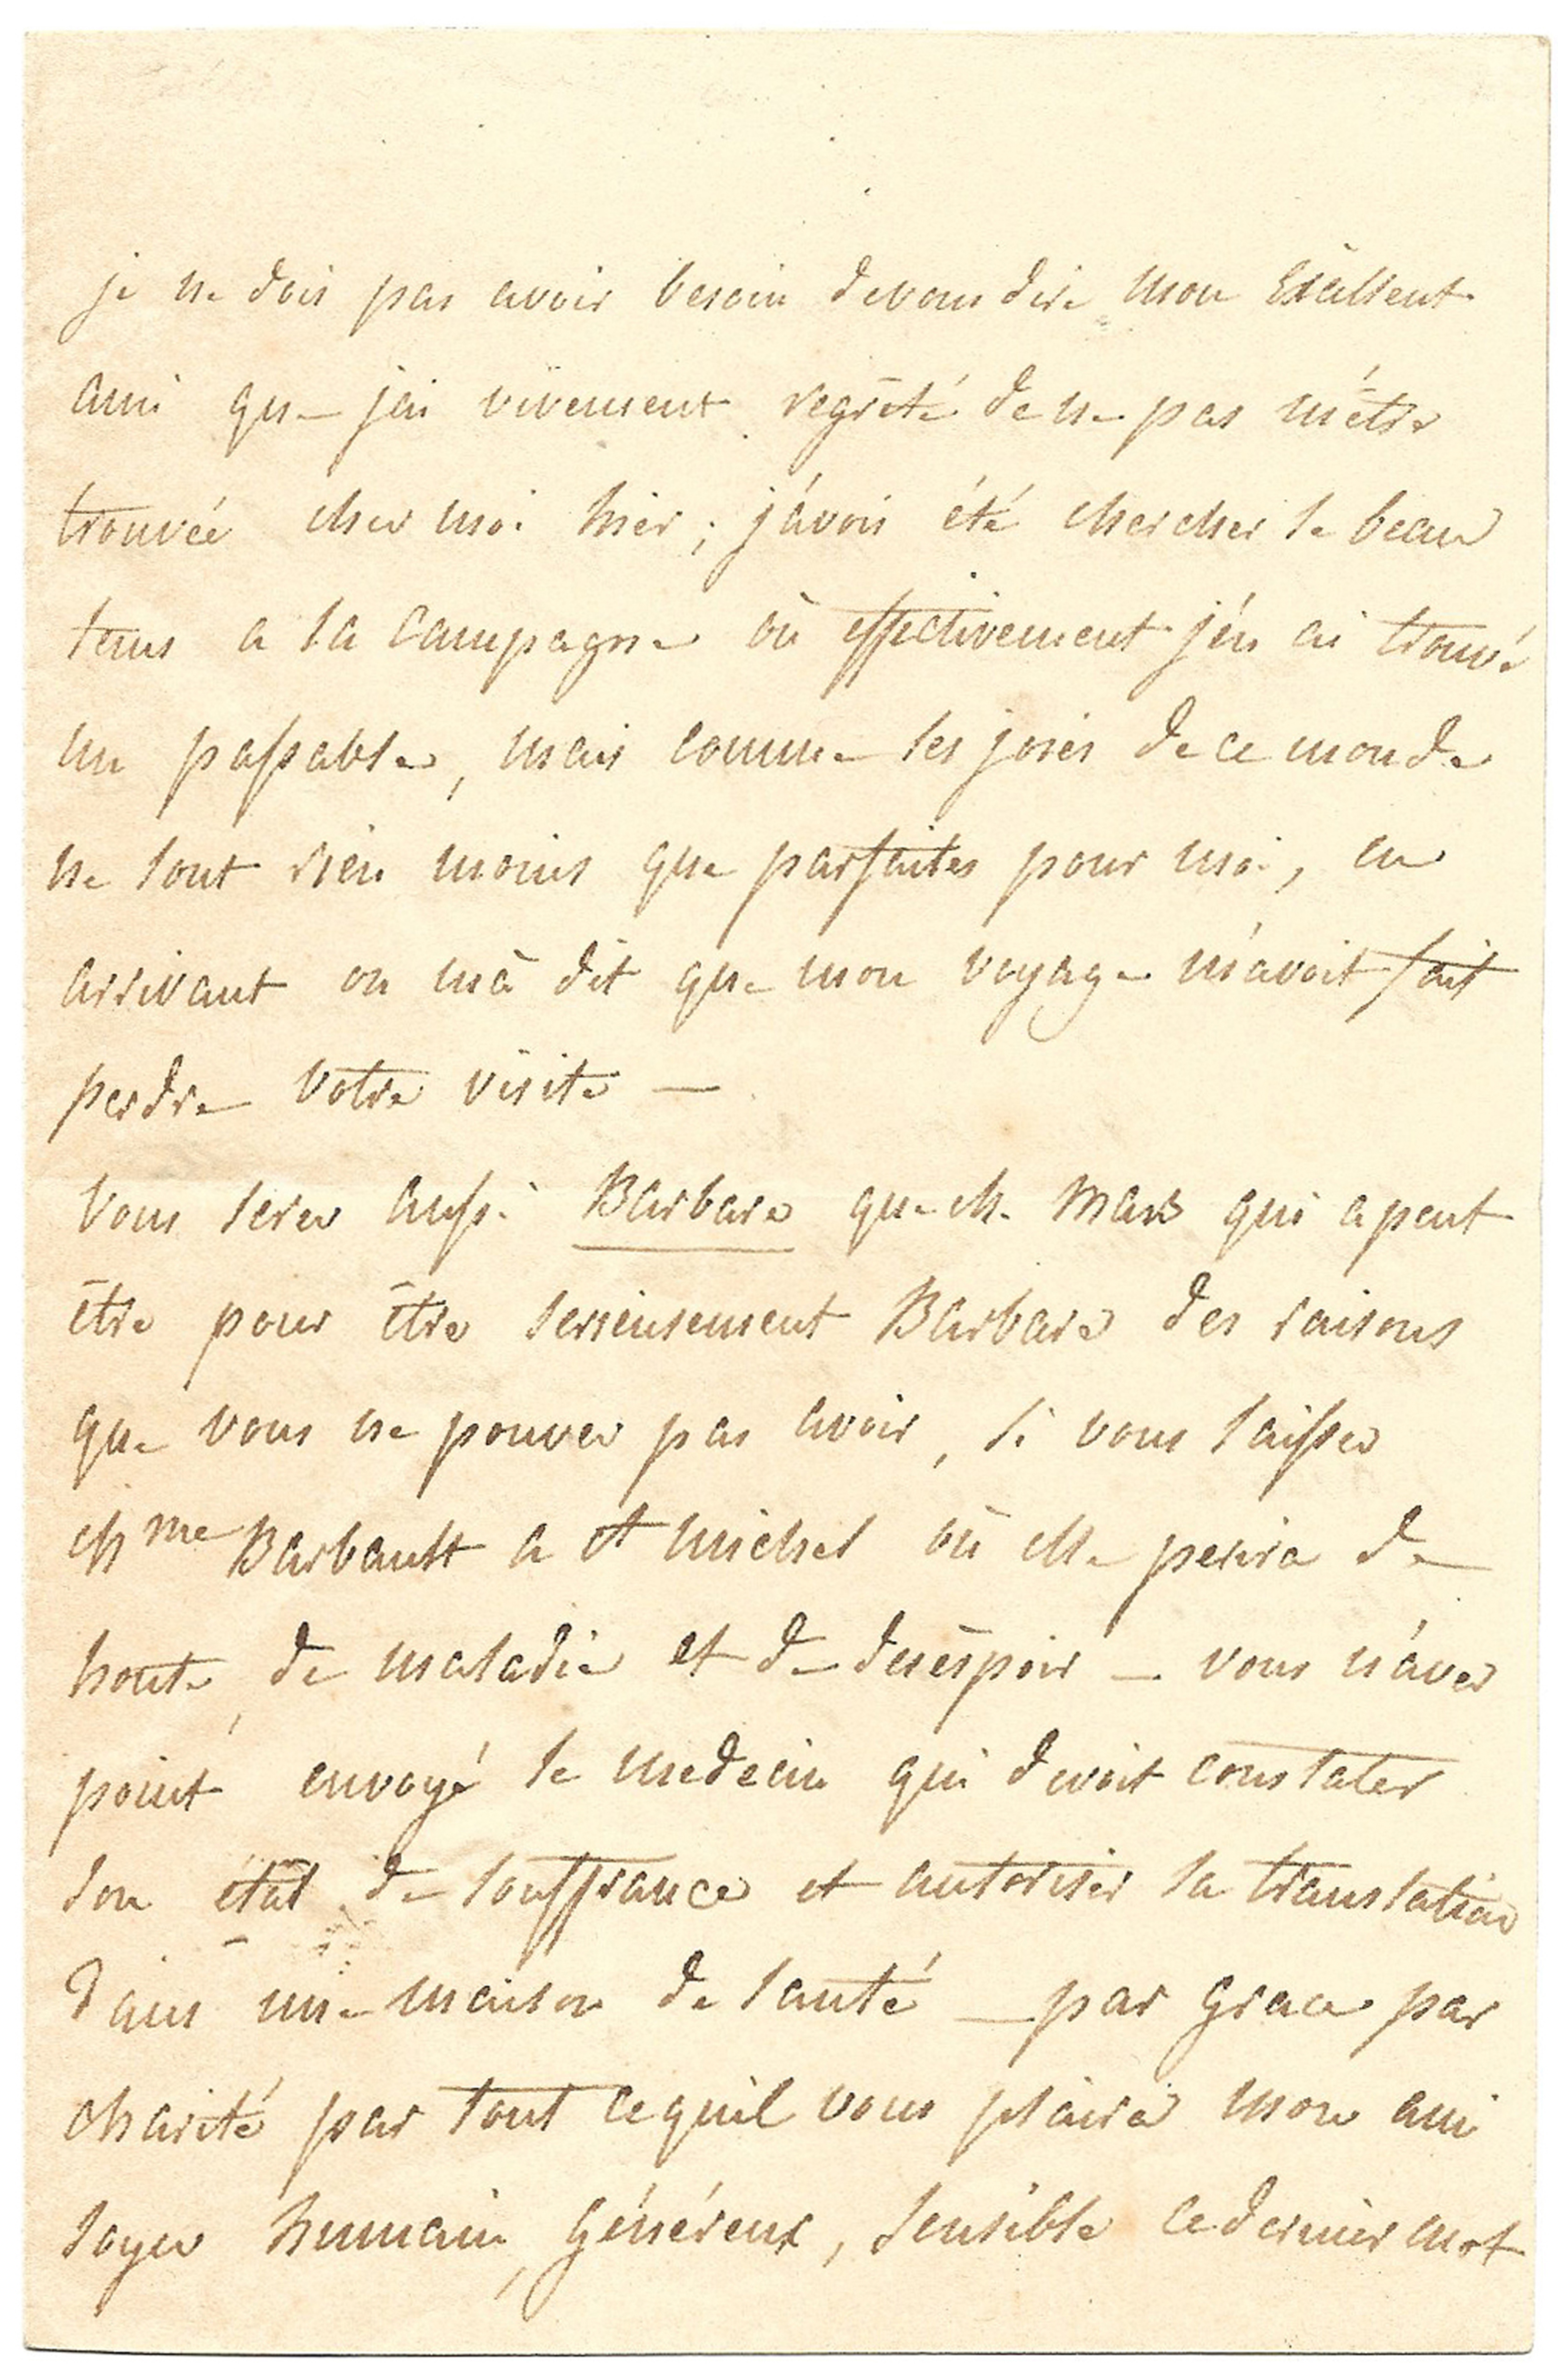 je ne dois pas avoir besoin de vous dire mon Exellent
ami que j'ai vivement regrèté de ne pas m'étre
trouvée chez moi hier ; j'avois été chercher le beau
tems a la campagne où effectivement j'én ai trouvé
un passable, mais comme les joies de ce monde
ne sont rien moins que parfaites pour moi, en
arrivant on m'a dit que mon voyage m'avoit fait
perdre votre visite —
vous serez aussi Barbare que Mr Mars qui a peut
être pour être serieusement Barbare des raisons
que vous ne pouvez pas avoir, si vous laissez
Mme Barbault a st michel où elle perira de
honte, de maladie et de deséspoir — vous n'avez
point envoyé le medecin qui devoit constater
son état de souffrance et autoriser sa translation
dans une maison de santé — par grace par
charité par tout ce qu'il vous plaira mon ami
soyez humain, généreux, sensible ce dernier mot